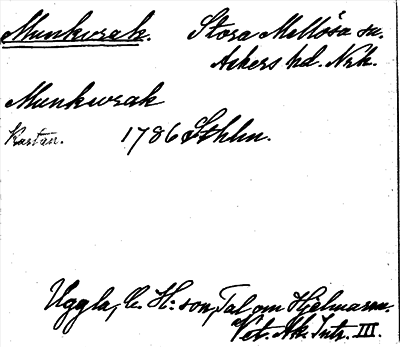 Munkvrak. Stora Mellösa sn.
Askers hd. Nrk.
Munkwrak
Kartan. 1786 Sthlm.
Uggla, C. H:son, Tal om Hjelmaren.
Vet. Ak. Intr. III.